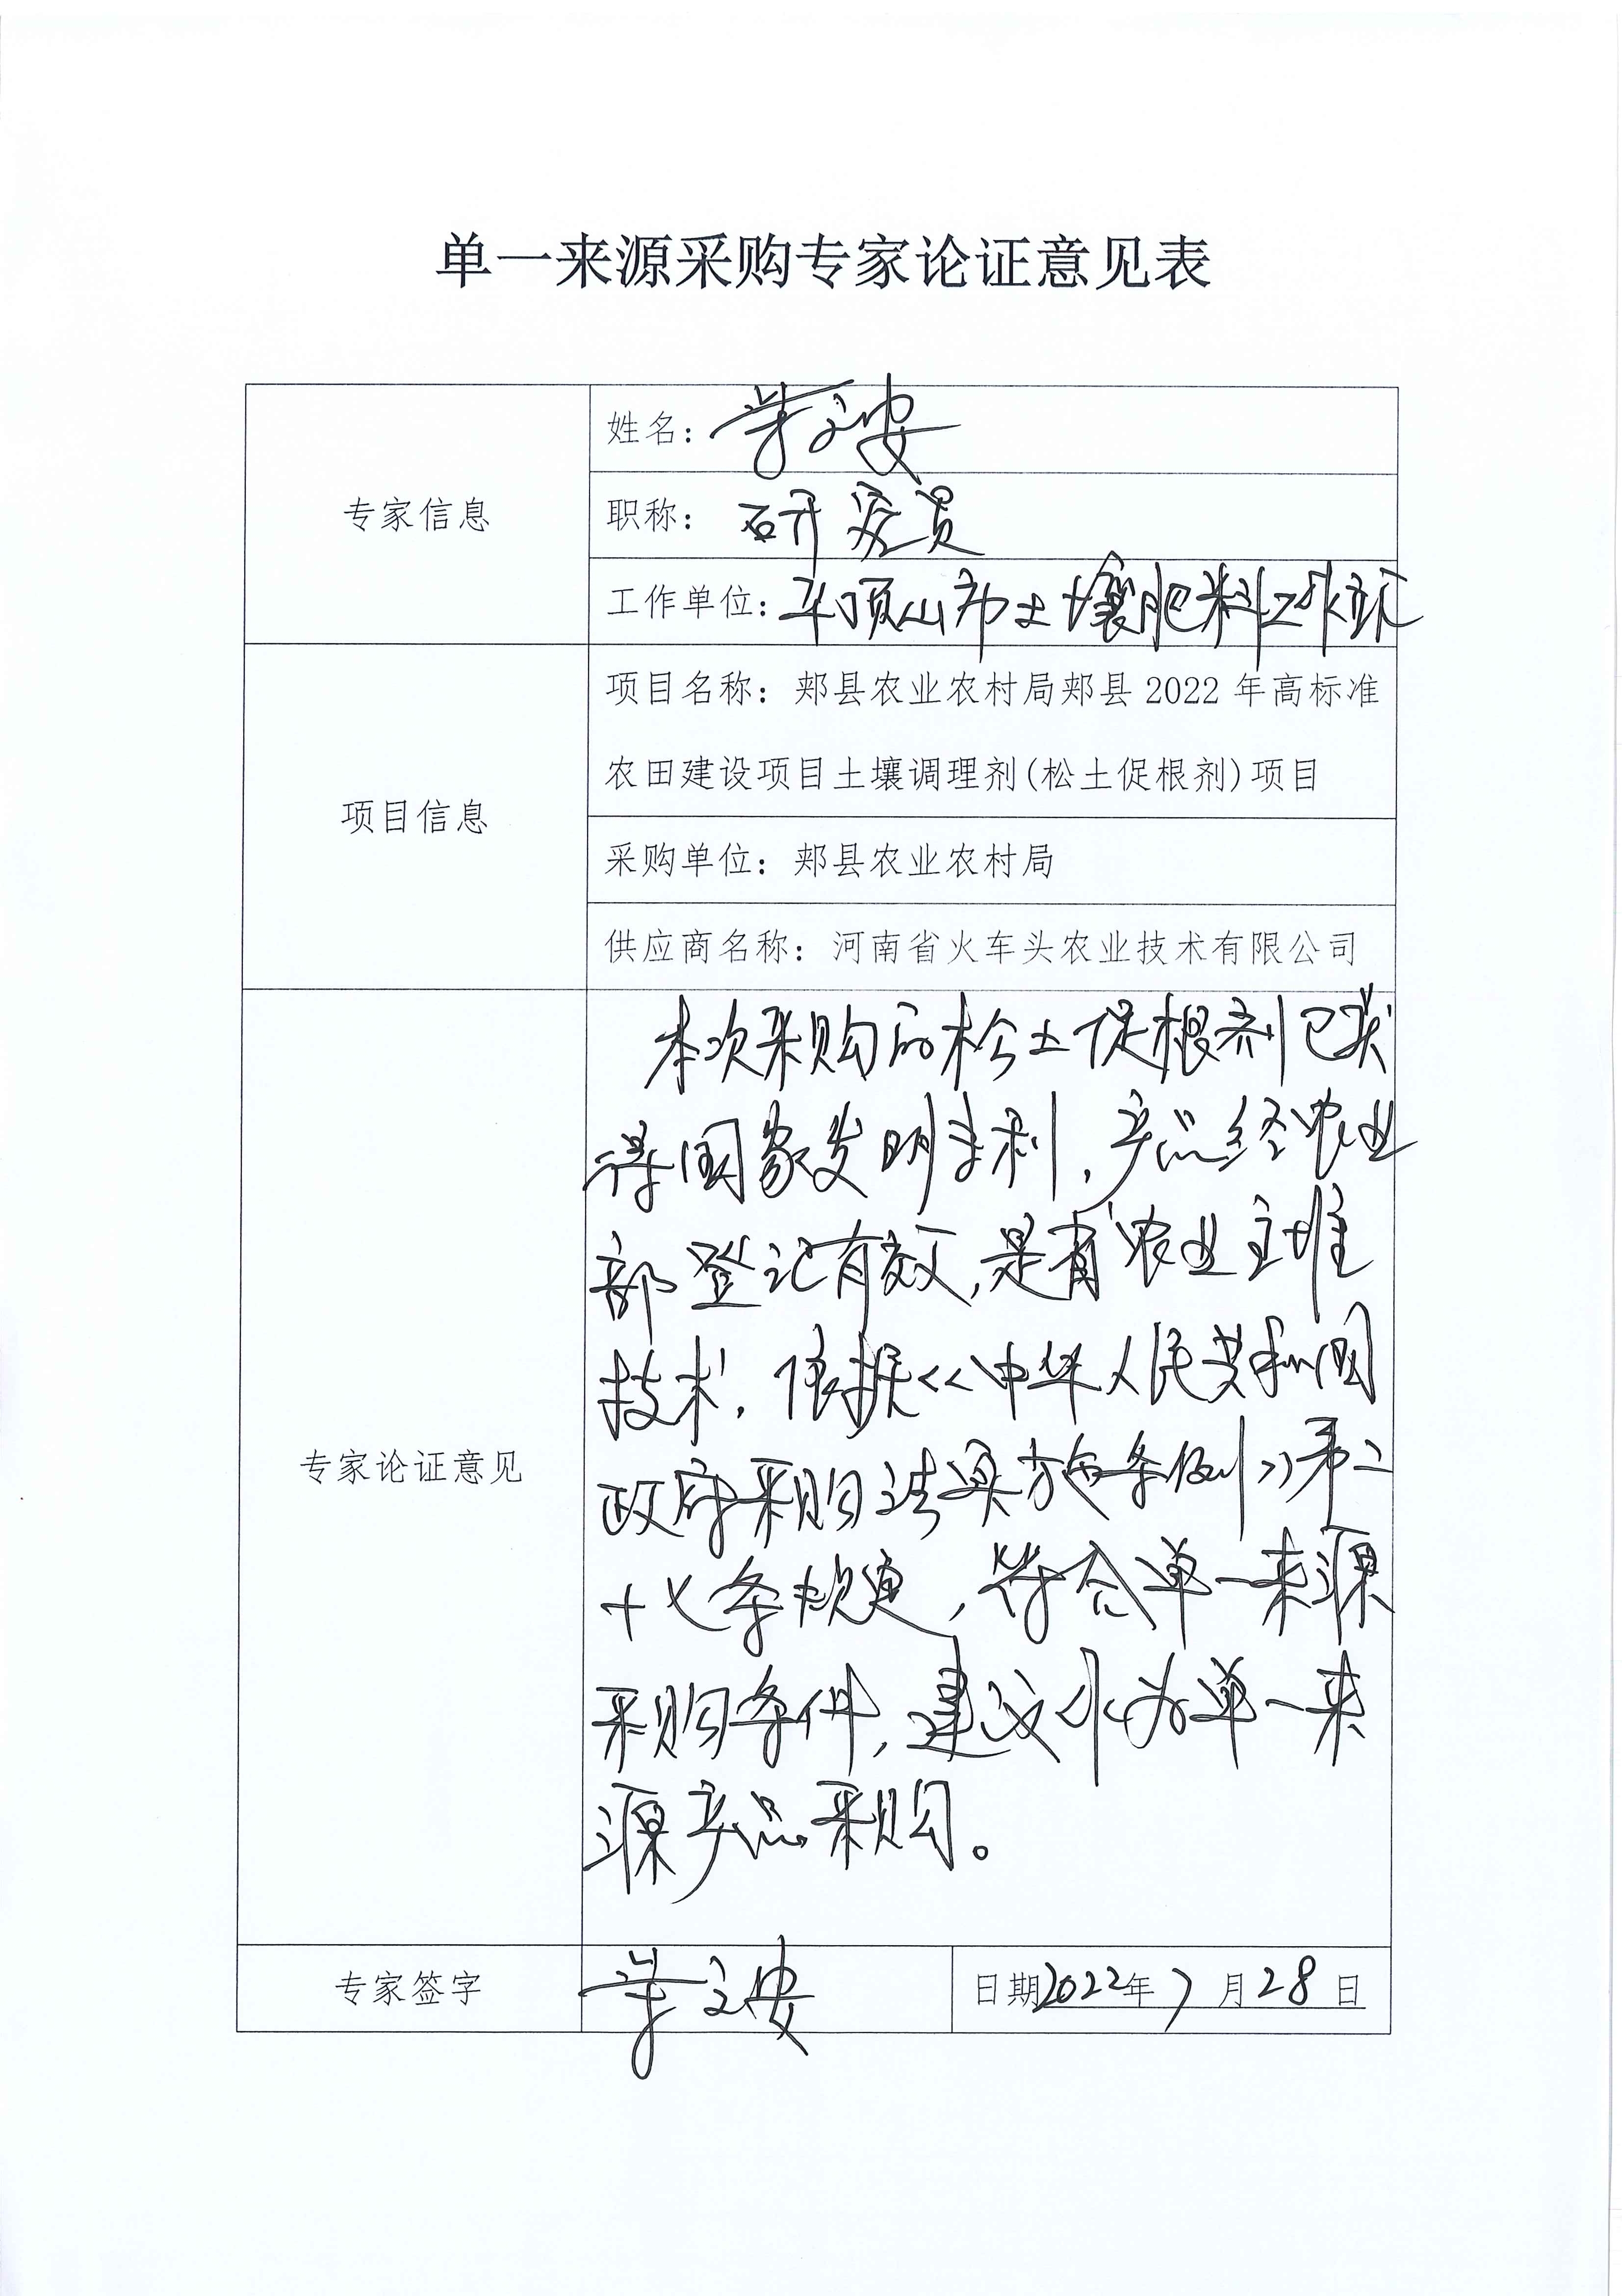 单一来源采购专家论证意见表
专家信息
姓名：文安
职称：研究员
工作单位：平顶山市土壤肥料工作站
项目信息
项目名称：郏县农业农村局郏县2022年高标准
农田建设项目土壤调理剂(松土促根剂)项目
采购单位：郏县农业农村局
供应商名称：河南省火车头农业技术有限公司
专家论证意见
本次采购的松土促根剂已获
得国家发明专利，产品经农业
部登记有效，是省农业主推
技术，依据<<中华人民共和国
政府采购法实施条例>>第二
十七条规定，符合单一来源
采购条件，建议作为单一来
源产品采购。
专家签字
文安
日期2022年7月28日